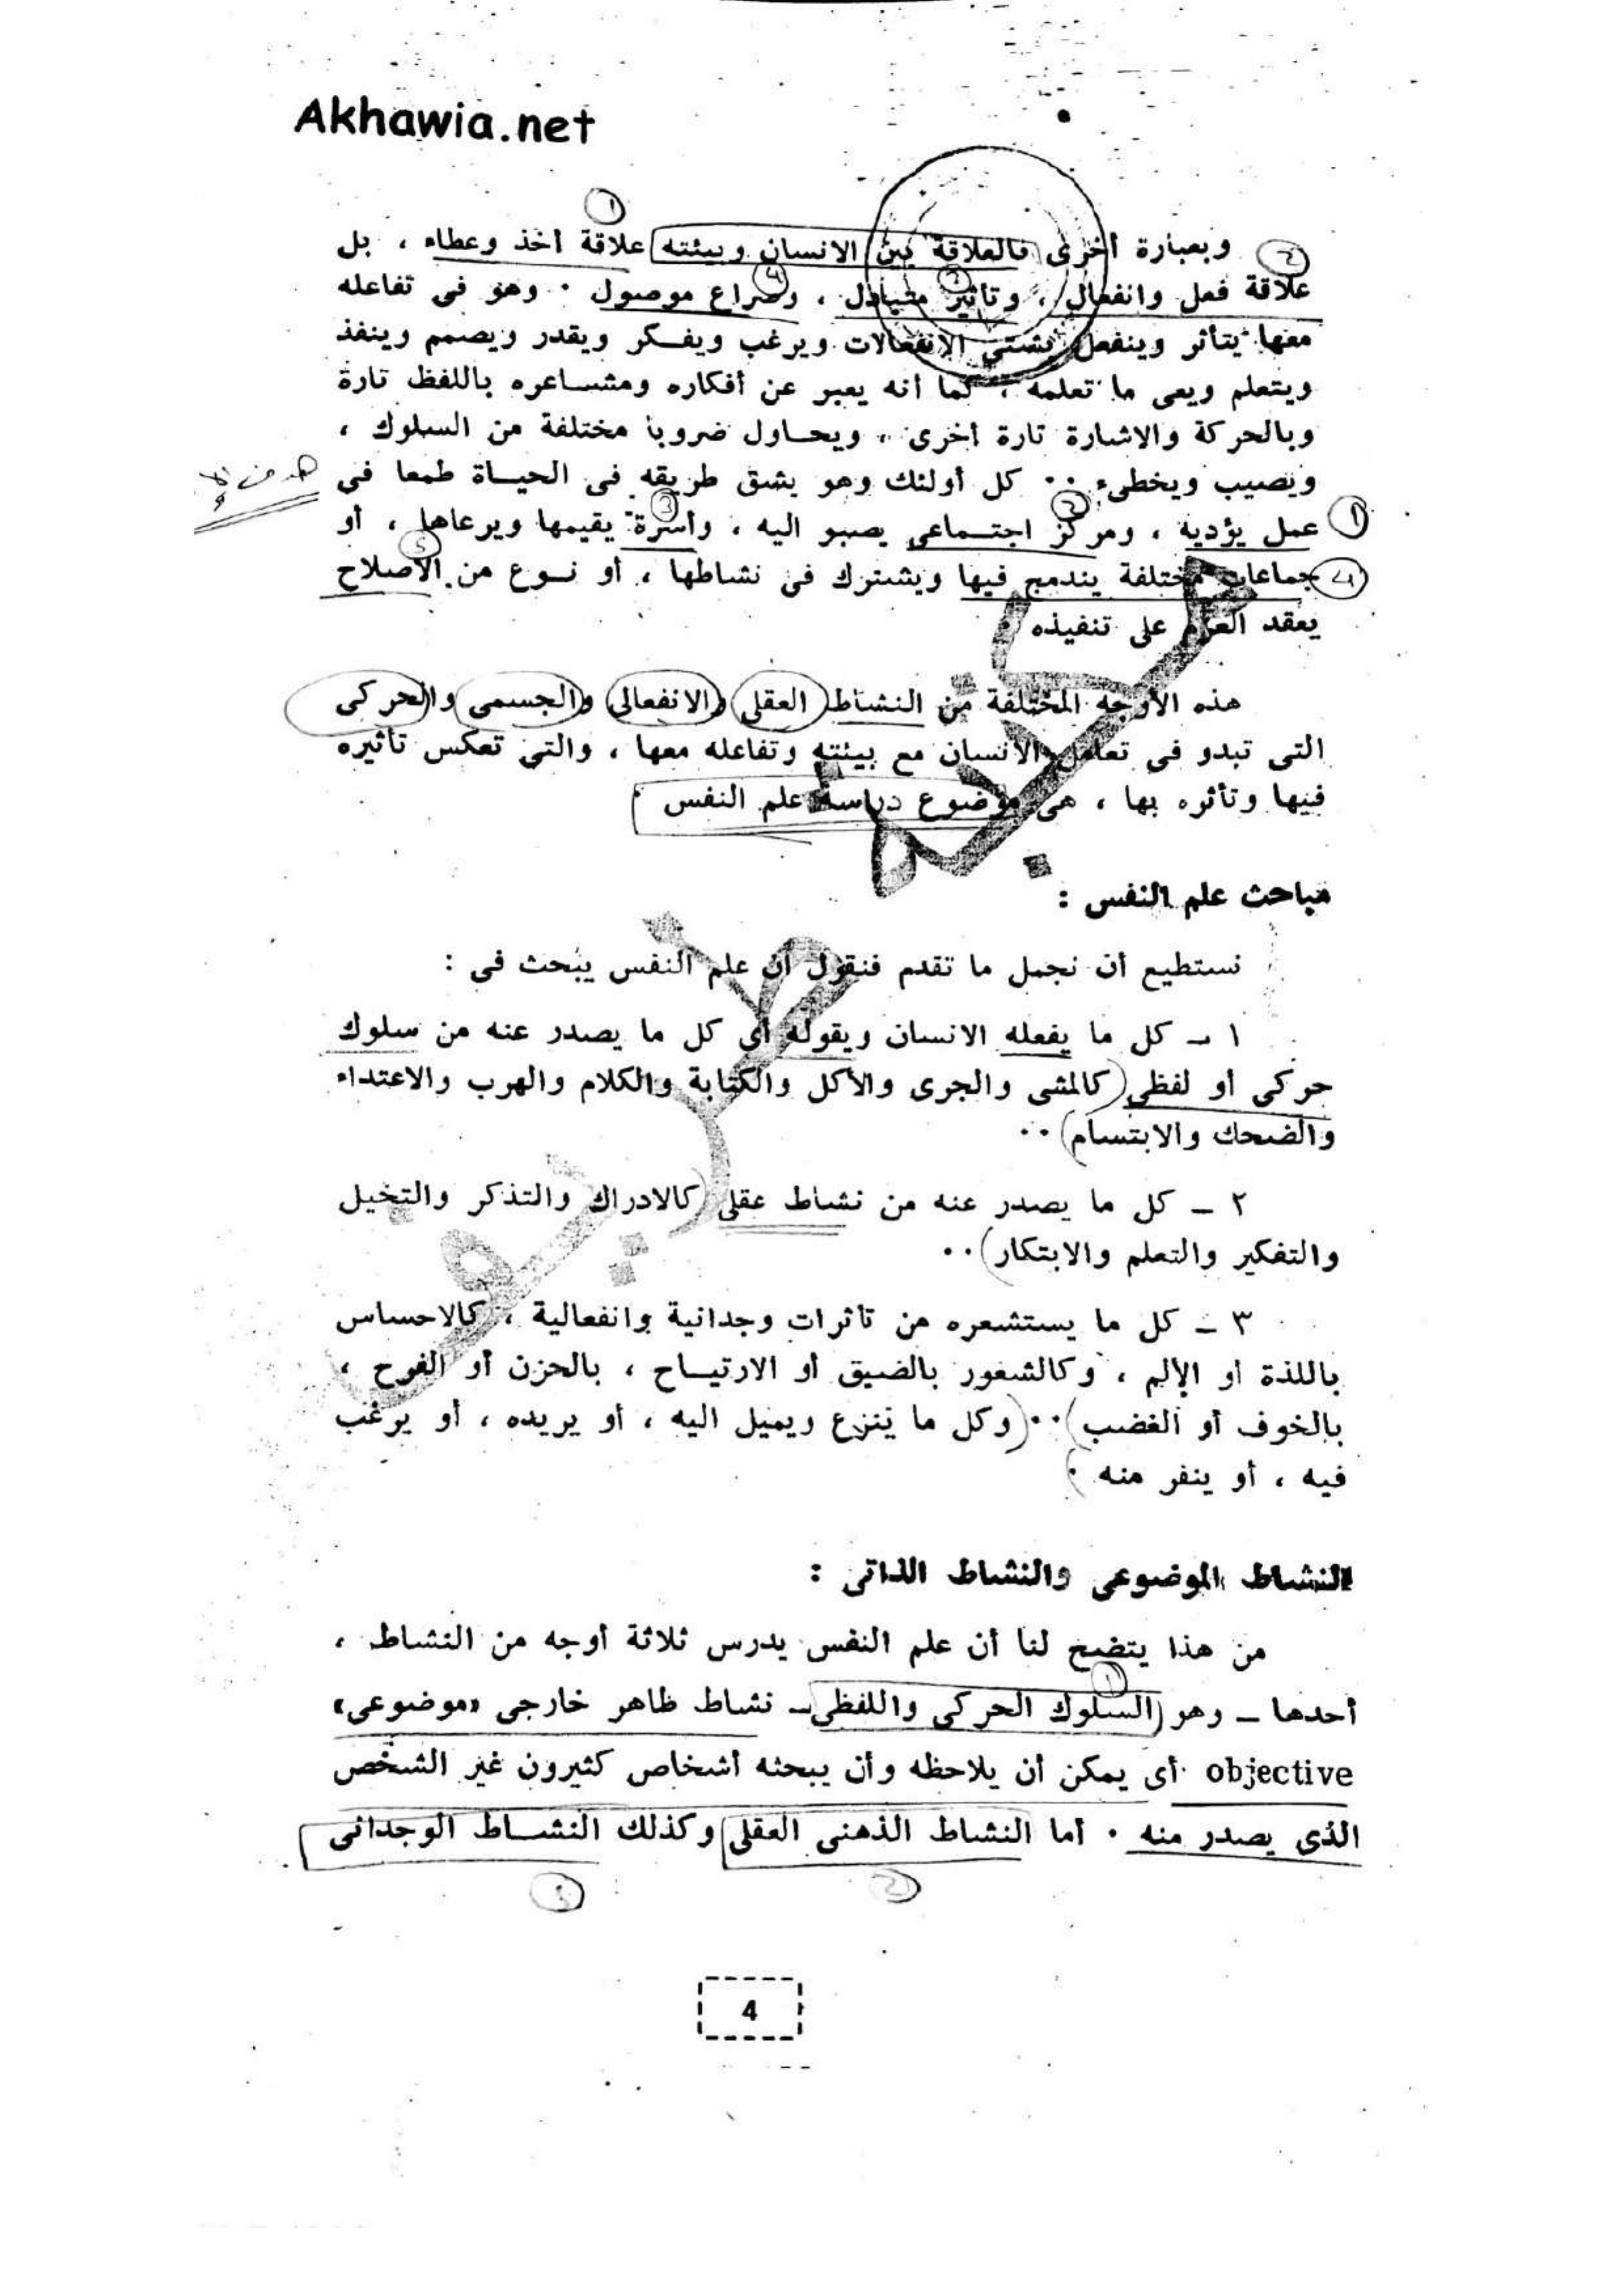 Akhawia.net
وبعبارة أخرى فالعلاقة بين الانسان وبيئته علاقة أخذ وعطاء ، بل
علاقة فعل وانفعال ، وتأثير متبادل ، وصراع موصول . وهو فى تفاعله
معها يتأثر وينفعل بشتى الانفعالات ويرغب ويفكر ويقدر ويصمم وينفذ
ويتعلم ويعى ما تعلمه ، كما أنه يعبر عن أفكاره ومشاعره باللفظ تارة
وبالحركة والاشارة تارة أخرى ، ويحاول ضروبا مختلفة من السلوك ،
ويصيب ويخطىء .. كل أولئك وهو يشق طريقه فى الحياة طمعا فى
عمل يؤديه ، ومركز اجتماعى يصبو اليه ، وأسرة يقيمها ويرعاها ، أو
جماعات مختلفة يندمج فيها ويشترك فى نشاطها ، أو نوع من الاصلاح
يعقد العزم على تنفيذه
هذه الأوجه المختلفة من النشاط العقلى والانفعالى والجسمى والحركى
التى تبدو فى تعامل الانسان مع بيئته وتفاعله معها ، والتى تعكس تأثيره
فيها وتأثره بها ، هى موضوع دراسة علم النفس .
مباحث علم النفس :
نستطيع أن نجمل ما تقدم فنقول ان علم النفس يبحث فى :
١ ــ كل ما يفعله الانسان ويقوله أى كل ما يصدر عنه من سلوك
حركى أو لفظى (كالمشى والجرى والأكل والكتابة والكلام والهرب والاعتداء
والضحك والابتسام) ..
٢ ــ كل ما يصدر عنه من نشاط عقلى (كالادراك والتذكر والتخيل
والتفكير والتعلم والابتكار) ..
٣ ــ كل ما يستشعره من تأثرات وجدانية وانفعالية ، كالاحساس
باللذة أو الألم ، وكالشعور بالضيق أو الارتياح ، بالحزن أو الفرح ،
بالخوف أو الغضب) .. (وكل ما ينزع ويميل اليه ، أو يريده ، أو يرغب
فيه ، أو ينفر منه .)
النشاط الموضوعى والنشاط الذاتى :
من هذا يتضح لنا أن علم النفس يدرس ثلاثة أوجه من النشاط ،
أحدها ــ وهو السلوك الحركى واللفظى ــ نشاط ظاهر خارجى «موضوعى»
objective أى يمكن أن يلاحظه وأن يبحثه أشخاص كثيرون غير الشخص
الذى يصدر منه . أما النشاط الذهنى العقلى وكذلك النشاط الوجدانى
4